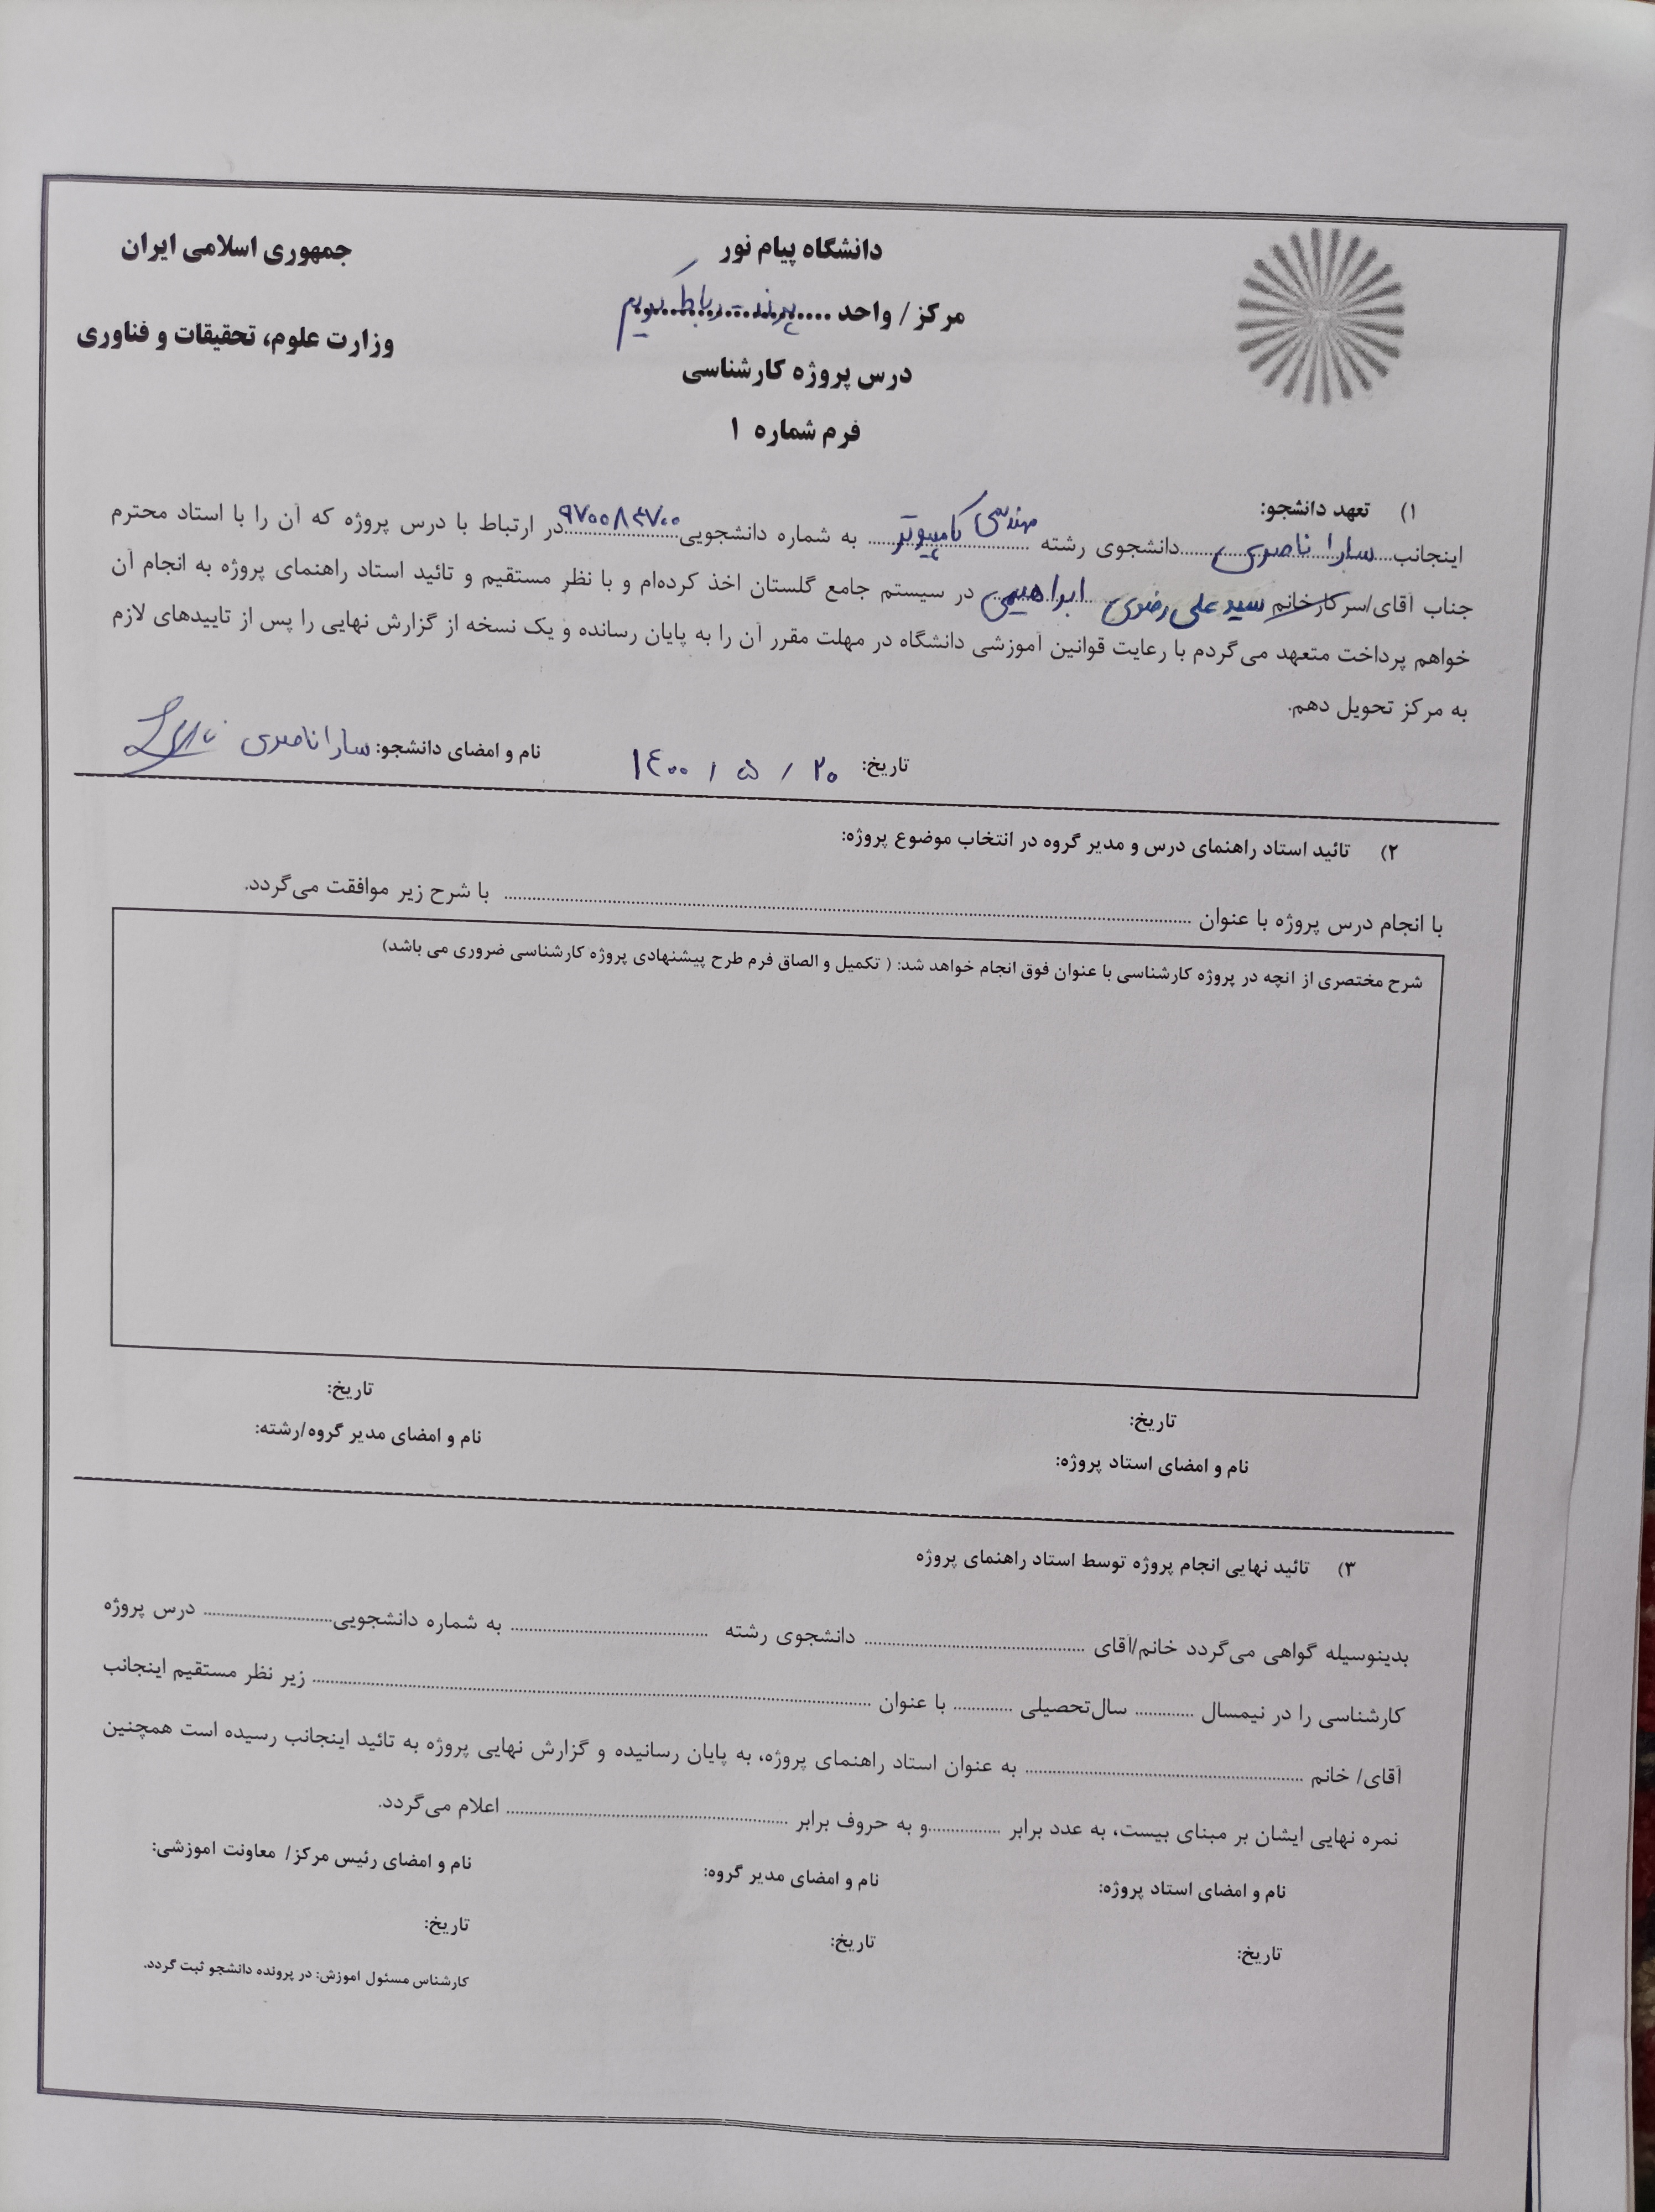 جمهوری اسلامی ایران
وزارت علوم، تحقیقات و فناوری
دانشگاه پیام نور
مرکز / واحد .... پرند - رباط کریم
درس پروژه کارشناسی
فرم شماره ۱
۱) تعهد دانشجو:
اینجانب سارا ناصری دانشجوی رشته مهندسی کامپیوتر به شماره دانشجویی ۹۷۰۰۸۳۷۰۰ در ارتباط با درس پروژه که آن را با استاد محترم
جناب آقای/سرکارخانم سید علی رضوی ابراهیمی در سیستم جامع گلستان اخذ کرده‌ام و با نظر مستقیم و تائید استاد راهنمای پروژه به انجام آن
خواهم پرداخت متعهد می‌گردم با رعایت قوانین آموزشی دانشگاه در مهلت مقرر آن را به پایان رسانده و یک نسخه از گزارش نهایی را پس از تاییدهای لازم
به مرکز تحویل دهم.
تاریخ: ۲۰ / ۵ / ۱۴۰۰ نام و امضای دانشجو: سارا ناصری
۲) تائید استاد راهنمای درس و مدیر گروه در انتخاب موضوع پروژه:
با انجام درس پروژه با عنوان .................... با شرح زیر موافقت می‌گردد.
شرح مختصری از انچه در پروژه کارشناسی با عنوان فوق انجام خواهد شد: ( تکمیل و الصاق فرم طرح پیشنهادی پروژه کارشناسی ضروری می باشد)
تاریخ: تاریخ:
نام و امضای استاد پروژه: نام و امضای مدیر گروه/رشته:
۳) تائید نهایی انجام پروژه توسط استاد راهنمای پروژه
بدینوسیله گواهی می‌گردد خانم/آقای .................... دانشجوی رشته .................... به شماره دانشجویی .................... درس پروژه
کارشناسی را در نیمسال ............ سال‌تحصیلی ............ با عنوان .................... زیر نظر مستقیم اینجانب
آقای/ خانم .................... به عنوان استاد راهنمای پروژه، به پایان رسانیده و گزارش نهایی پروژه به تائید اینجانب رسیده است همچنین
نمره نهایی ایشان بر مبنای بیست، به عدد برابر ...............و به حروف برابر .................... اعلام می‌گردد.
نام و امضای استاد پروژه: نام و امضای مدیر گروه: نام و امضای رئیس مرکز/ معاونت اموزشی:
تاریخ: تاریخ: تاریخ:
کارشناس مسئول اموزش: در پرونده دانشجو ثبت گردد.